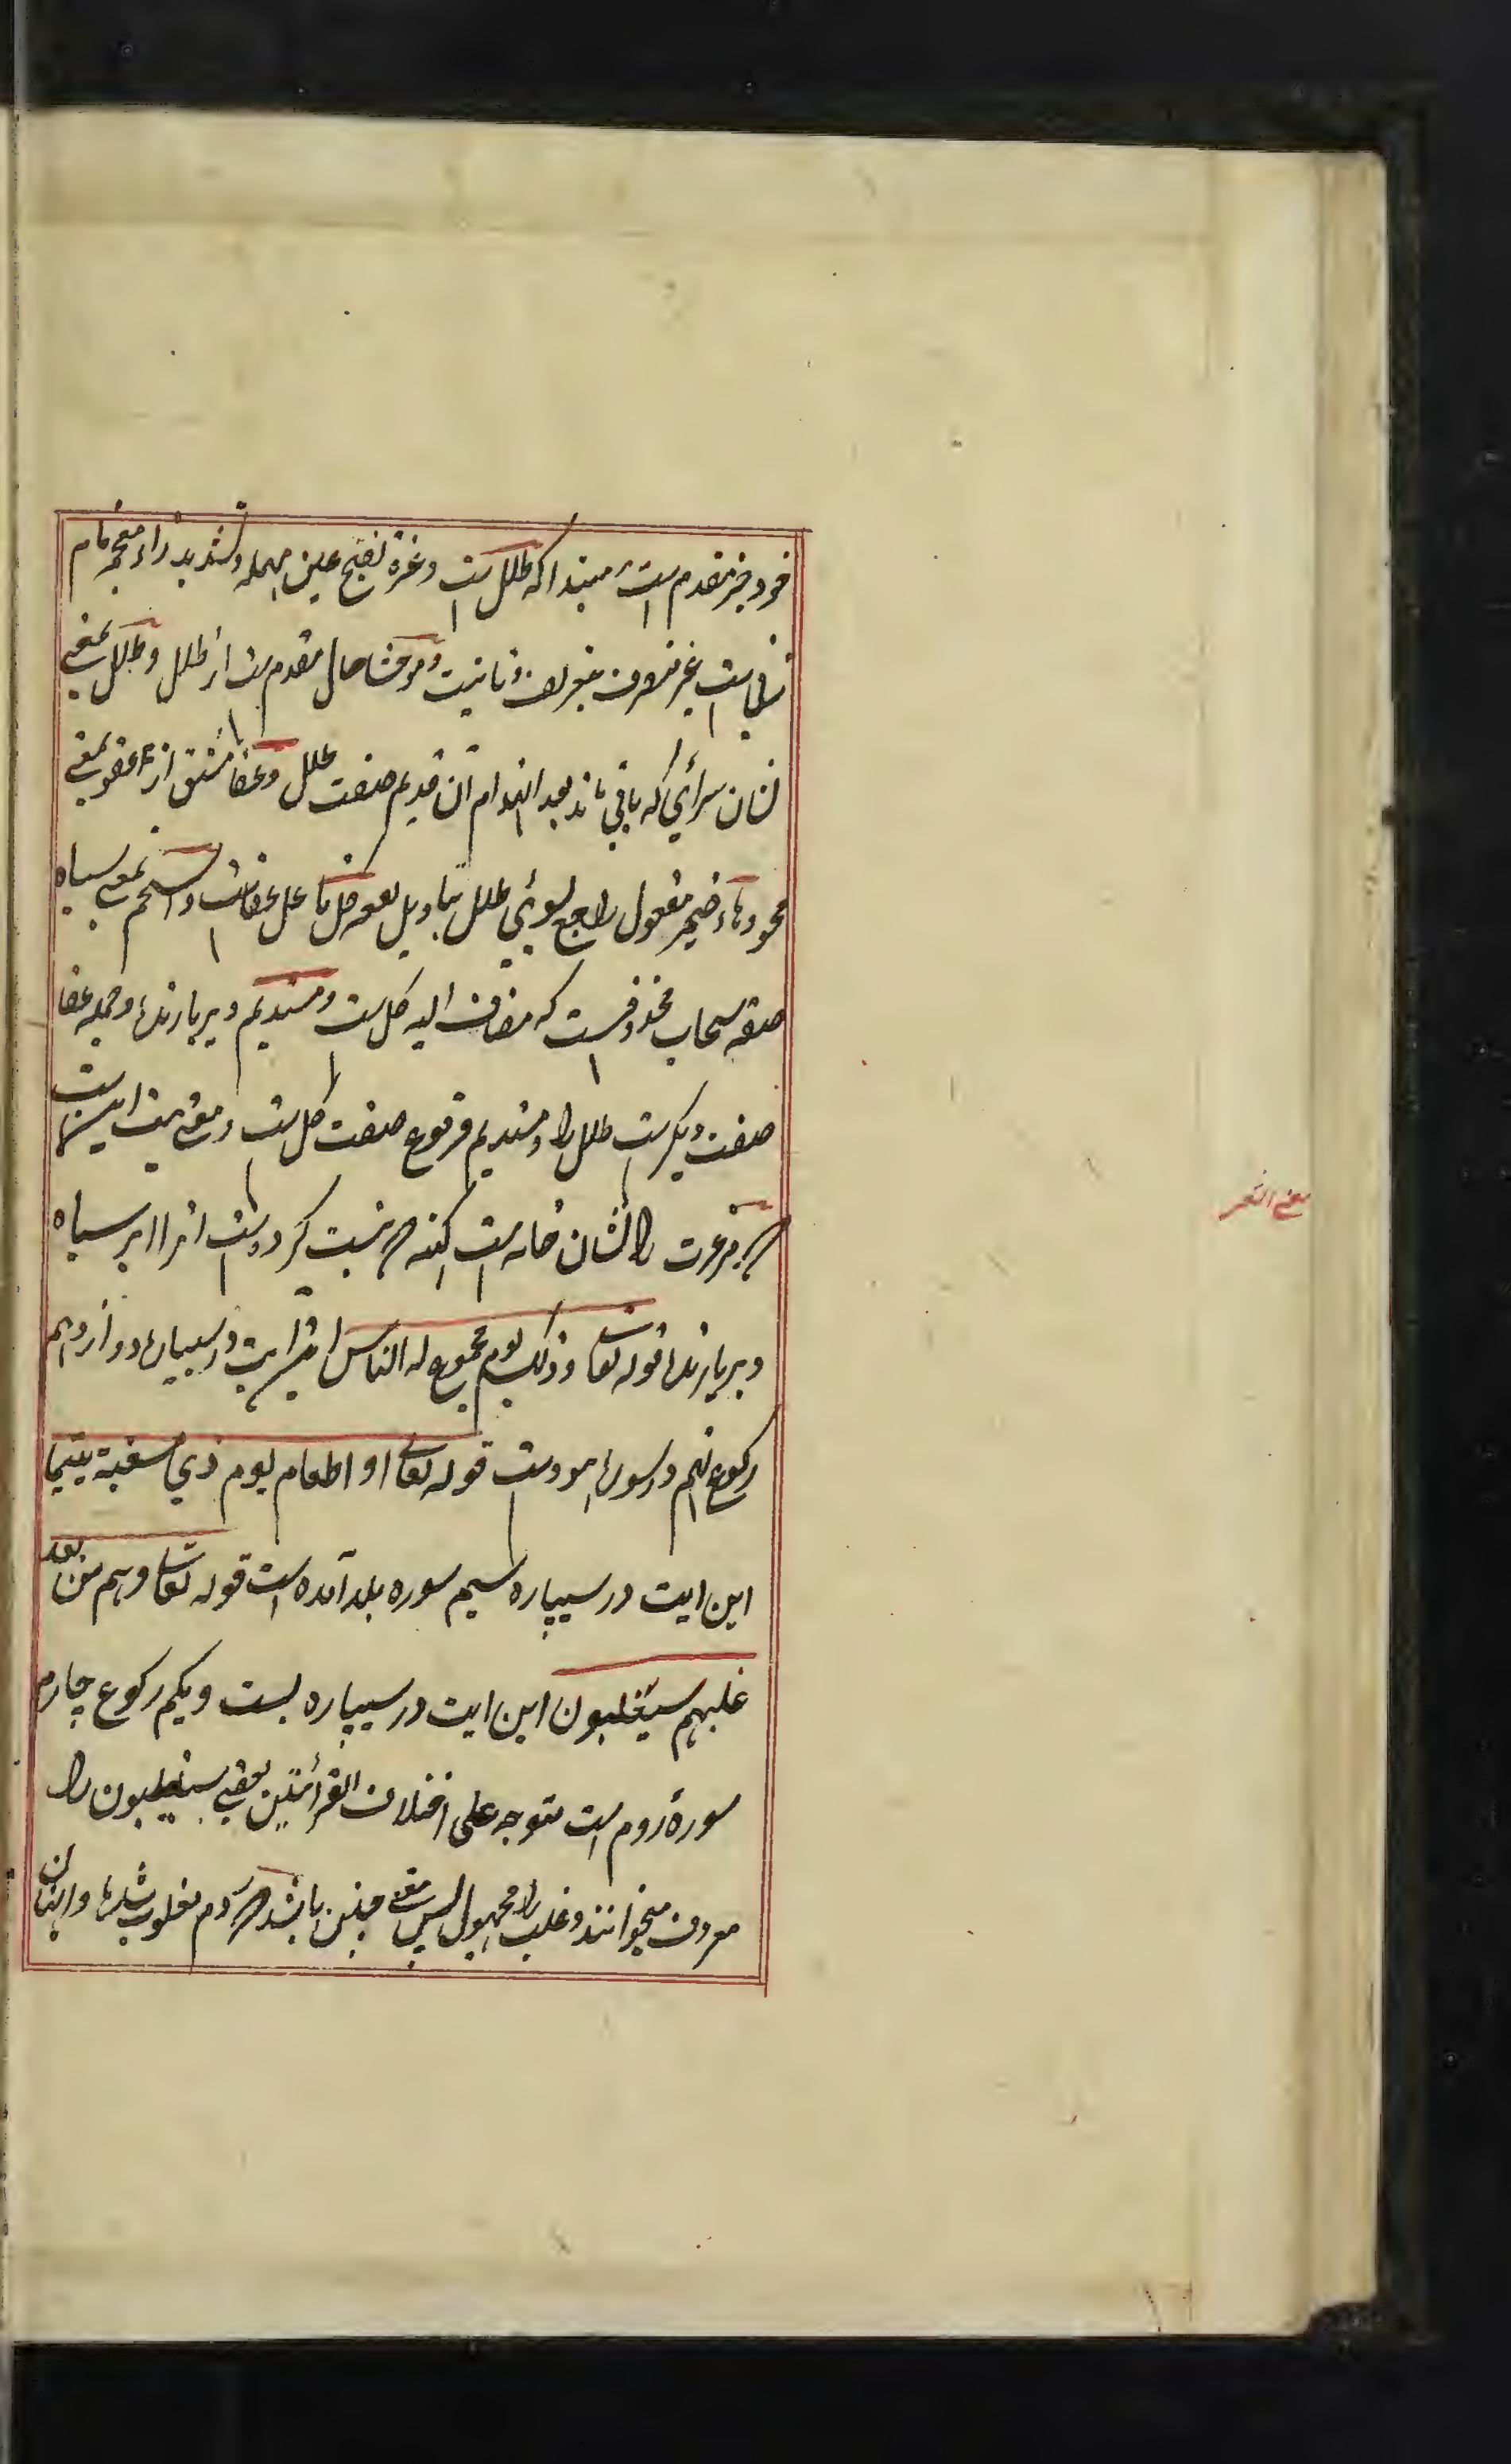 خود خبر مقدم است مبتدا که طلل است و عزة بفتح عین مهمله و تشدید زاء معجمه نام
زنی است غیر منصرف بتعریف و تانیث و موحشا حال مقدم ست از طلل و طلل بمعنی
نشان سرائی که باقی ماند بعد انهدام آن قدیم صفت طلل و عفا مشتق از عفو بمعنی
محو و هاء ضمیر مفعول راجع بسوئی طلل بتاویل بقعه کل فاعل عفاست و اسحم بمعنی سیاه
صفة سحاب محذوفست که مضاف الیه کل ست و مستدیم دیر بارنده و جمله عفا
صفت دیگرست طلل را و مستدیم مرفوع صفت کل ست و معنی بیت اینست
که مر عزت را نشان خانه است کهنه که نیست کرده است انرا ابر سیاه
دیر بارنده قوله تعالی و ذلک یوم مجموع له الناس این ایت در سیپاره دوازدهم
رکوع نهم در سوره هود ست قوله تعالی او اطعام یوم ذی مسغبة یتیما
این ایت در سیپاره سیم سوره بلد آمده است قوله تعالی و هم من بعد
غلبهم سیغلبون این ایت در سیپاره بست و یکم رکوع چارم
سورۀ روم است متوجه علی اختلاف القرائتین یعنی سیغلبون را
معروف میخوانند و غلب را مجهول پس معنی چنین باشد که روم مغلوب شده و ایشان
معنی الشعر